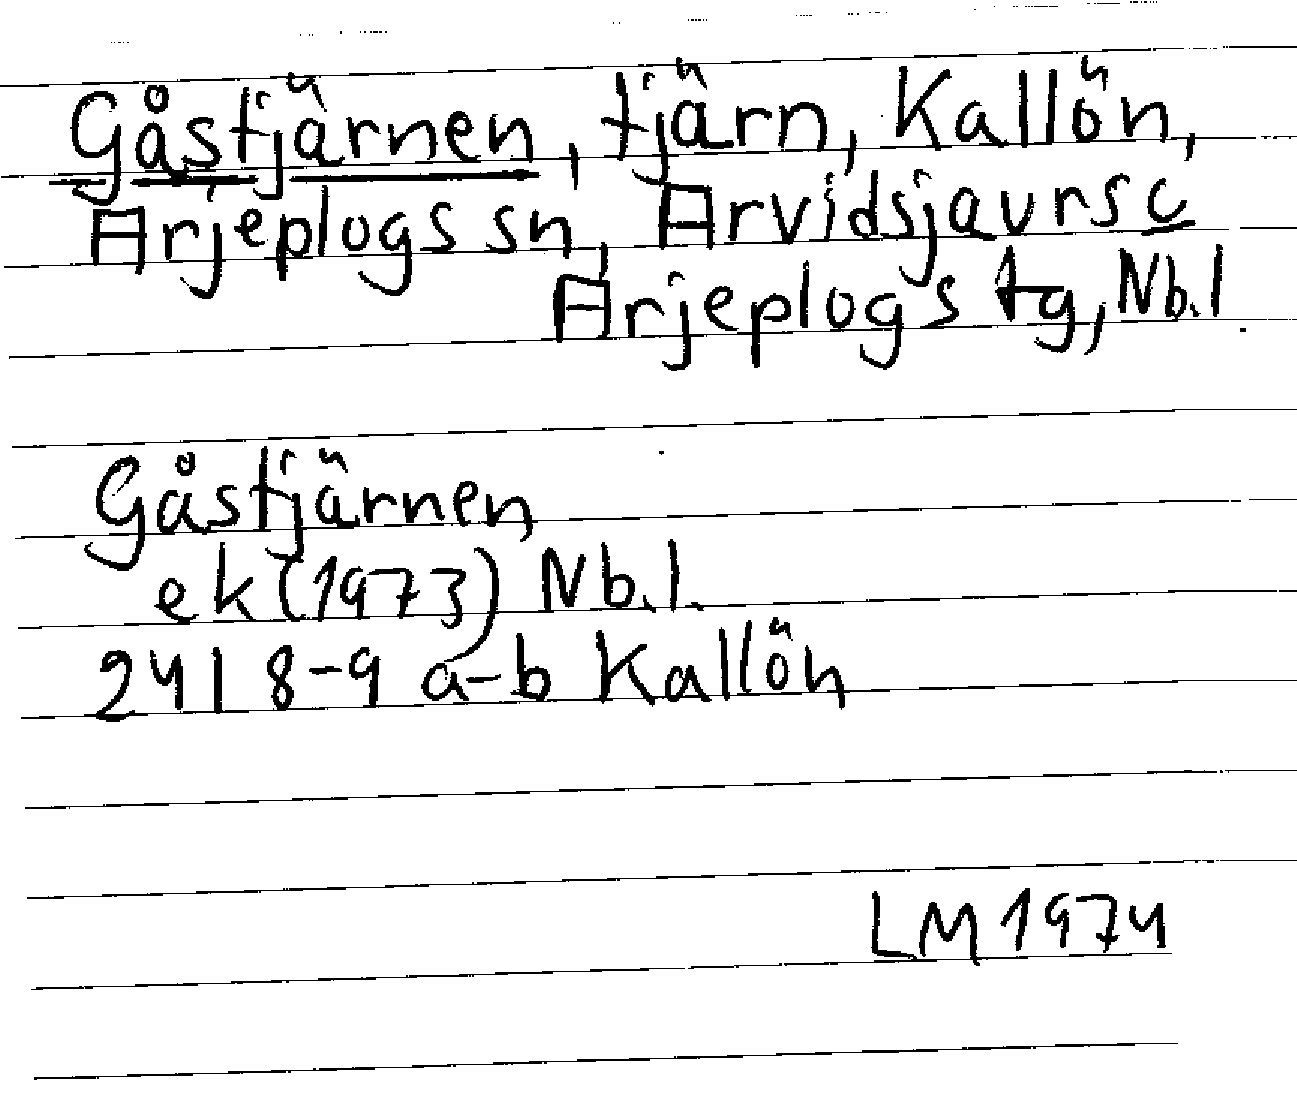 Gåstjärnen, tjärn, Kallön,
Arjeplogs sn, Arvidsjaurs c
Arjeplogs tg, Nb.l
Gåstjärnen
ek (1973) Nb.l.
24I 8-9 a-b Kallön
LM 1974